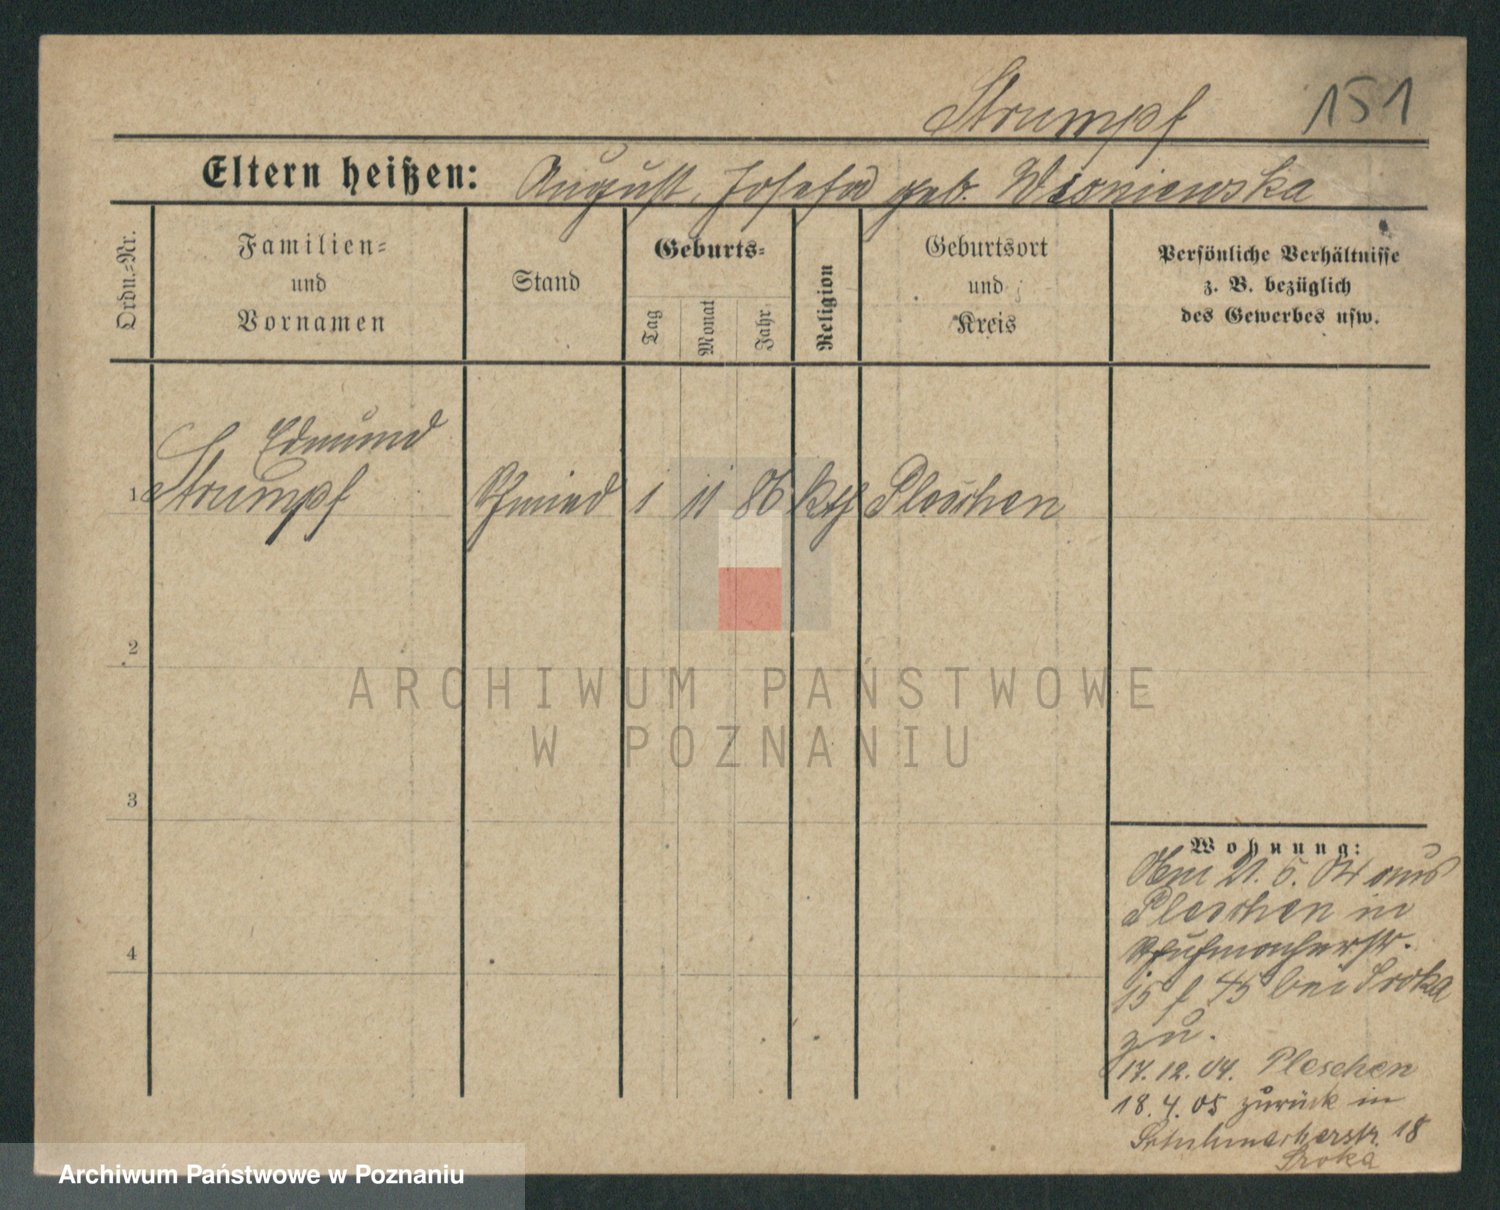 Strumpf 151
Eltern heißen: August, Josefa geb. Wisniewska
Ordn.-Nr.
Familien-
und
Vornamen
Stand
Geburts-
Tag
Monat
Jahr
Religion
Geburtsort
und
Kreis
Persönliche Verhältnisse
z. B. bezüglich
des Gewerbes usw.
Edmund
1 Strumpf Schmied 1 11 86 kth Pleschen
2
3
4
ARCHIWUM PAŃSTWOWE
W POZNANIU
Wohnung:
21. 5. 04 aus
Pleschen in
Schuhmacherstr.
15 bei Sroka
zu.
17.12.04. Pleschen
18.4.05 zurück in
Schuhmacherstr. 18
Sroka
Archiwum Państwowe w Poznaniu